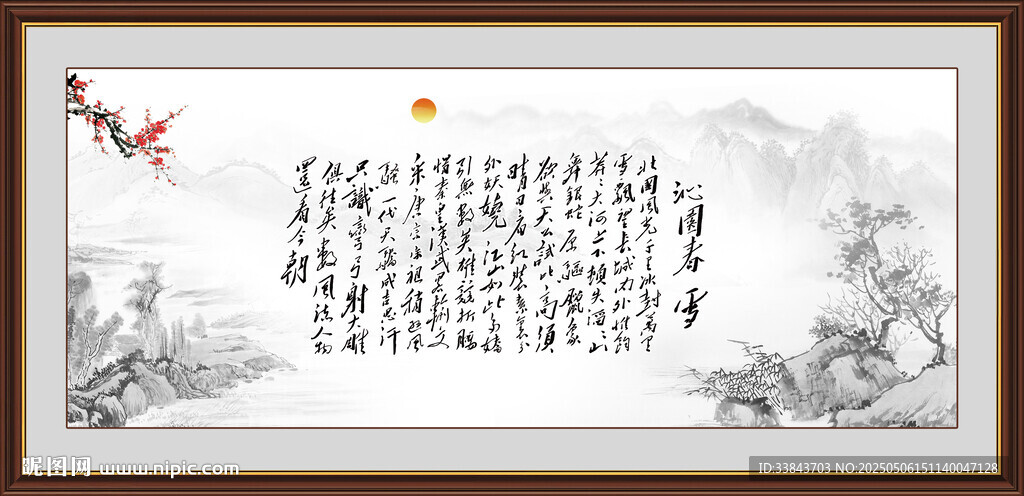 沁園春 雪
北國風光千里冰封萬里
雪飄望長城内外惟餘
莽〻大河上下頓失滔〻山
舞銀蛇原驅臘象
欲與天公試比高須
晴日看红裝素裹分
外妖嬈江山如此多嬌
引無數英雄競折腰
惜秦皇漢武略輸文
采唐宗宋祖稍遜風
騷一代天驕成吉思汗
只識彎弓射大雕
俱往矣數風流人物
還看今朝
昵图网 www.nipic.com
ID:33843703 NO:20250506151140047128